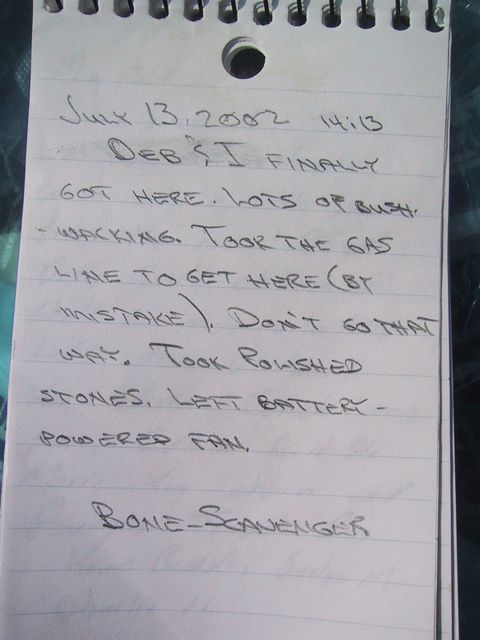 July 13, 2002 14:13
Deb & I finally
got here. Lots of bush-
-wacking. Took the gas
line to get here (by
mistake). Don't go that
way. Took polished
stones. Left battery-
powered fan.
Bone-Scavenger